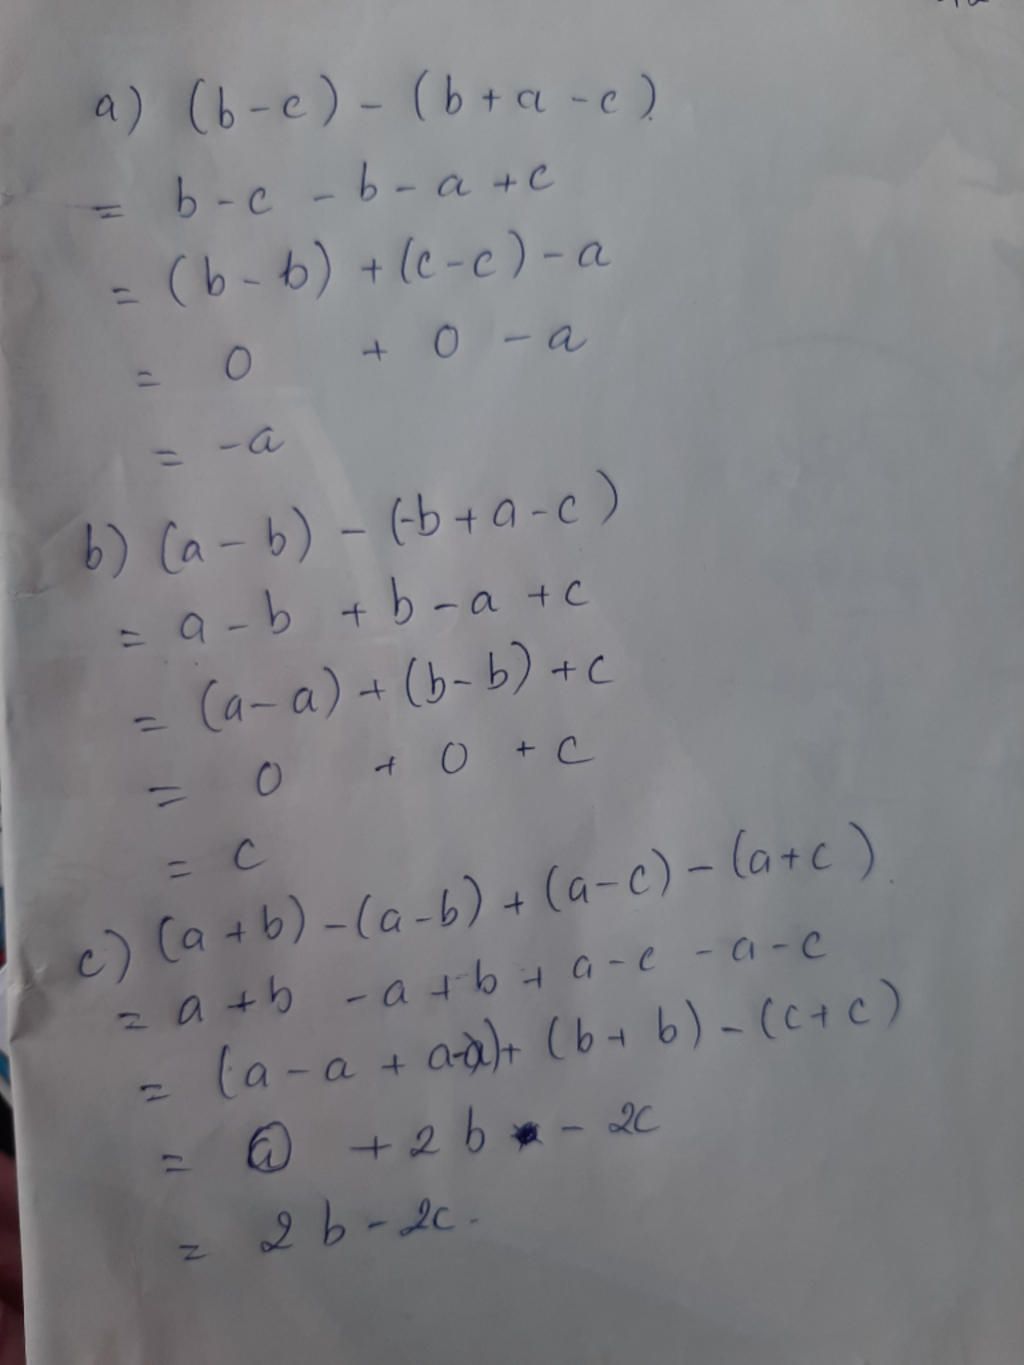 a) (b-c) - (b+a-c)
= b-c - b-a +c
= (b-b) + (c-c) - a
= 0 + 0 - a
= -a
b) (a-b) - (-b+a-c)
= a-b + b-a +c
= (a-a) + (b-b) + c
= 0 + 0 + c
= c
c) (a+b) - (a-b) + (a-c) - (a+c)
= a+b - a+b + a-c - a-c
= (a-a + a-a) + (b+b) - (c+c)
= 0 + 2b - 2c
= 2b - 2c.